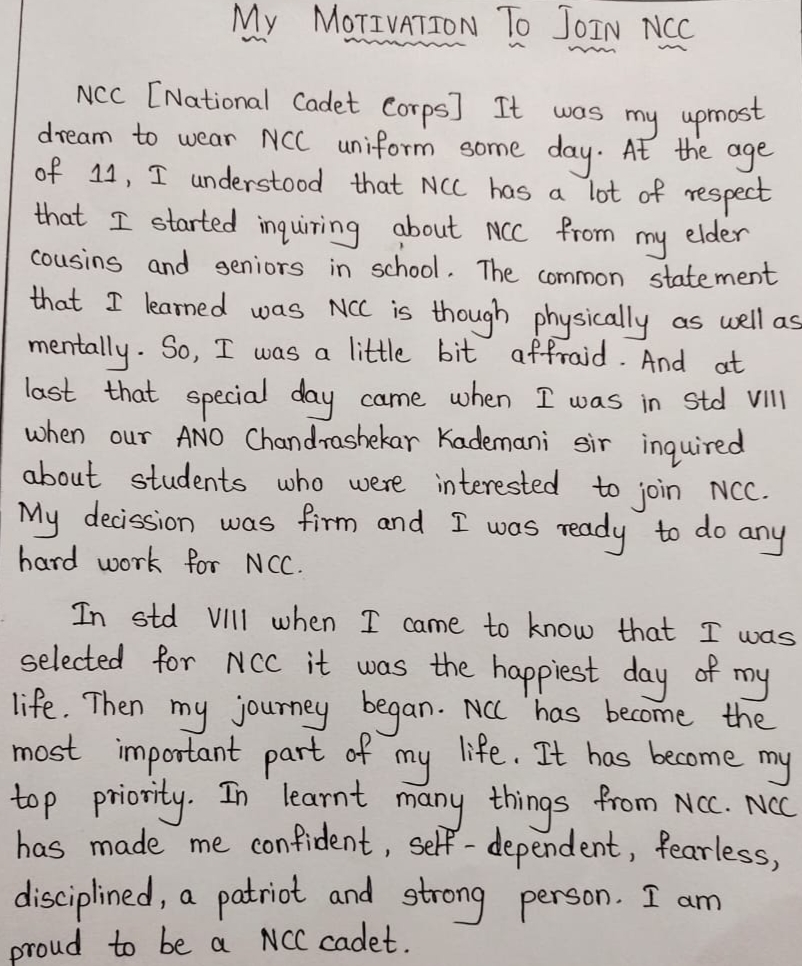 My MOTIVATION To JOIN NCC
NCC [National Cadet Corps] It was my upmost
dream to wear NCC uniform some day. At the age
of 11, I understood that NCC has a lot of respect
that I started inquiring about NCC from my elder
cousins and seniors in school. The common statement
that I learned was NCC is though physically as well as
mentally. So, I was a little bit affraid. And at
last that special day came when I was in std VIII
when our ANO Chandrashekar Kademani sir inquired
about students who were interested to join NCC.
My decission was firm and I was ready to do any
hard work for NCC.
In std VIII when I came to know that I was
selected for NCC it was the happiest day of my
life. Then my journey began. NCC has become the
most important part of my life. It has become my
top priority. In learnt many things from NCC. NCC
has made me confident, self-dependent, fearless,
disciplined, a patriot and strong person. I am
proud to be a NCC cadet.